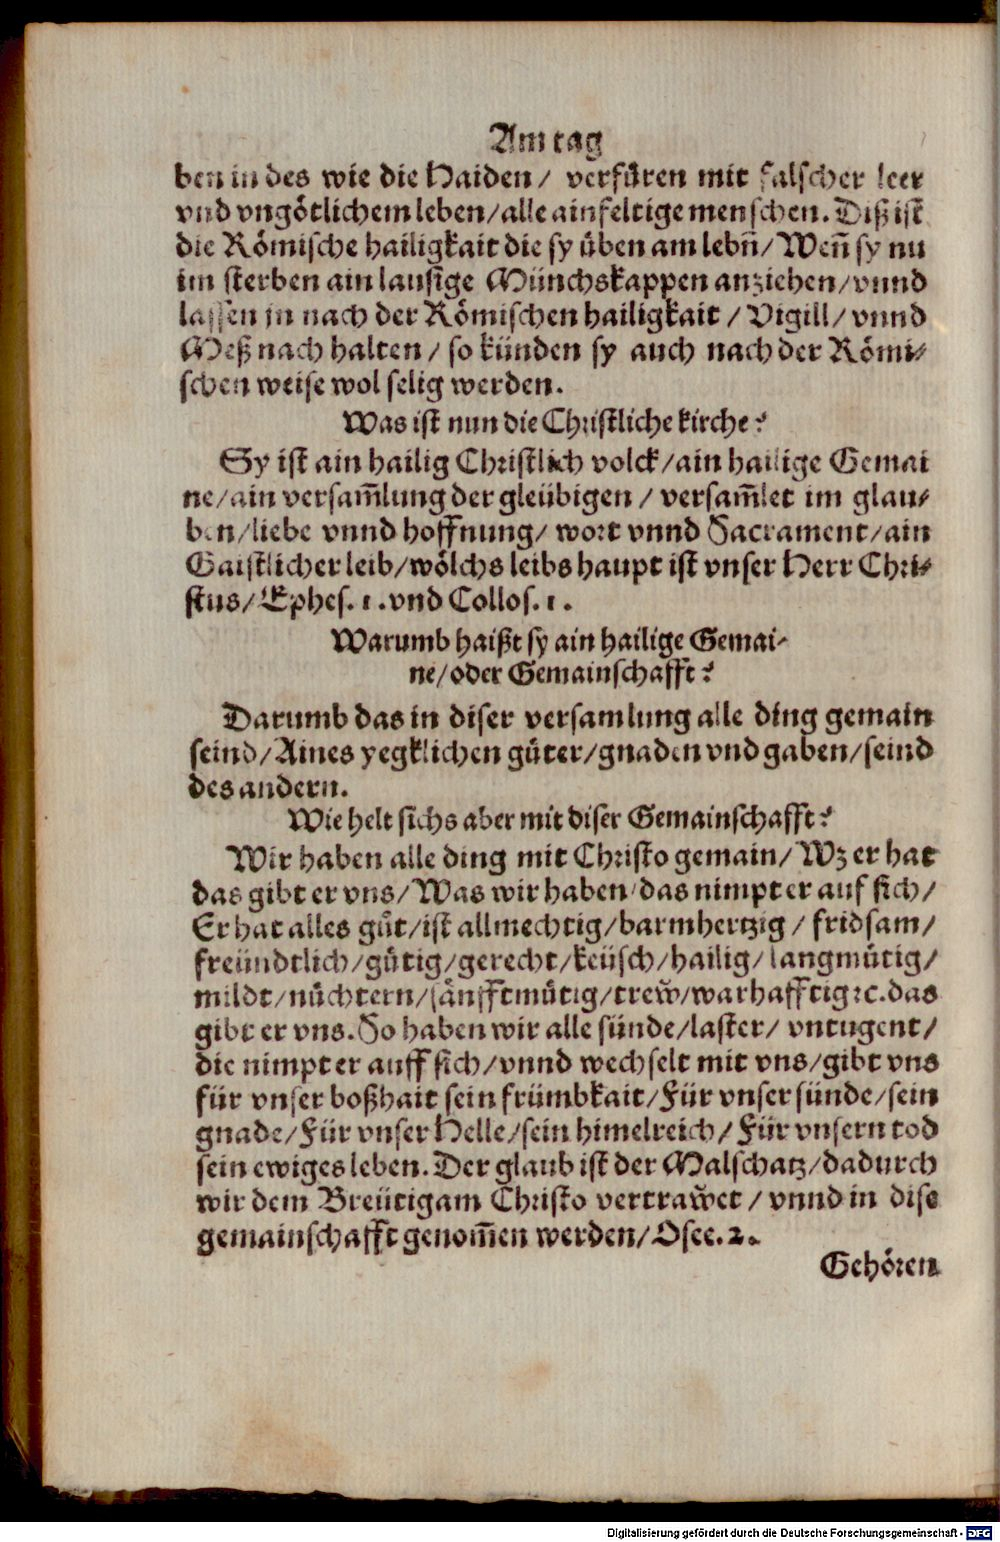 Am tag
ben in des wie die Haiden / verfüren mit falscher leer
vnd vngötlichem leben/alle ainfeltige menschen. Diß ist
die Römische hailigkait die sy üben am lebñ/Weñ sy nu
im sterben ain lausige Münchskappen anziehen/vnnd
lassen jn nach der Römischen hailigkait / Vigill/vnnd
Meß nach halten / so künden sy auch nach der Römi⸗
schen weise wol selig werden.
Was ist nun die Christliche kirche?
Sy ist ain hailig Christlich volck/ain hailige Gemai
ne/ain versam̃lung der gleübigen / versam̃let im glau⸗
ben/liebe vnnd hoffnung/ wort vnnd Sacrament/ain
Gaistlicher leib/wölchs leibs haupt ist vnser Herr Chri⸗
stus/Ephes. 1. vnd Collos. 1.
Warumb haißt sy ain hailige Gemai⸗
ne/oder Gemainschafft?
Darumb das in diser versamlung alle ding gemain
seind/Aines yegklichen güter/gnaden vnd gaben/seind
des andern.
Wie helt sichs aber mit diser Gemainschafft?
Wir haben alle ding mit Christo gemain/Wz er hat
das gibt er vns/Was wir haben/das nimpt er auf sich/
Er hat alles gůt/ist allmechtig/barmhertzig / fridsam/
freündtlich/gütig/gerecht/keüsch/hailig/langmütig/
mildt/nüchtern/sänfftmütig/trew̃/warhafftig ⁊c. das
gibt er vns. So haben wir alle sünde/laster/ vntugent/
die nimpt er auff sich/vnnd wechselt mit vns/gibt vns
für vnser boßhait sein frümbkait/Für vnser sünde/sein
gnade/Für vnser Helle/sein himelreich/Für vnsern tod
sein ewiges leben. Der glaub ist der Malschatz/dadurch
wir dem Breütigam Christo vertraw̃et / vnnd in dise
gemainschafft genom̃en werden/Osee. 2.
Gehören
Digitalisierung gefördert durch die Deutsche Forschungsgemeinschaft - DFG